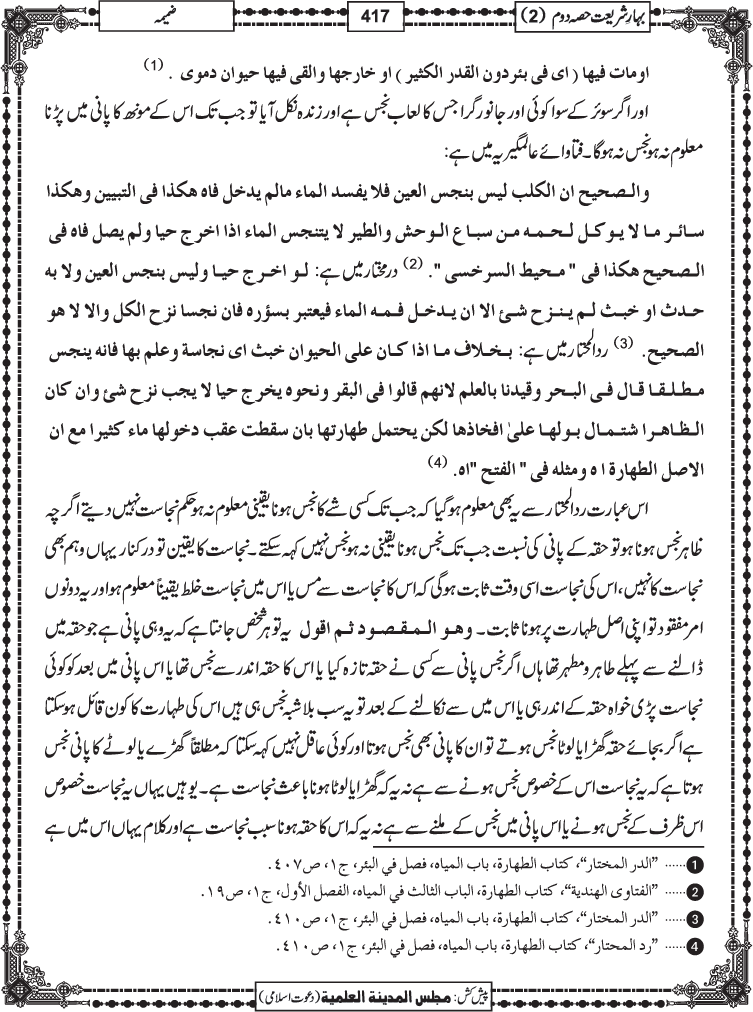 بہارِ شریعت حصہ دوم (2)
417
ضمیمہ
اومات فیھا ( ای فی بئردون القدر الکثیر ) او خارجھا والقی فیھا حیوان دموی . (1)
اور اگر سوئر کے سوا کوئی اور جانور گرا جس کا لعاب نجس ہے اور زندہ نکل آیا تو جب تک اس کے مونھ کا پانی میں پڑنا
معلوم نہ ہو نجس نہ ہوگا۔ فتاوائے عالمگیریہ میں ہے:
والصحیح ان الکلب لیس بنجس العین فلا یفسد الماء مالم یدخل فاہ ھکذا فی التبیین وھکذا
سائر ما لا یوکل لحمہ من سباع الوحش والطیر لا یتنجس الماء اذا اخرج حیا ولم یصل فاہ فی
الصحیح ھکذا فی " محیط السرخسی ". (2) درمختار میں ہے: لو اخرج حیا ولیس بنجس العین ولا بہ
حدث او خبث لم ینزح شئ الا ان یدخل فمہ الماء فیعتبر بسؤرہ فان نجسا نزح الکل والا لا ھو
الصحیح. (3) ردالمحتار میں ہے: بخلاف ما اذا کان علی الحیوان خبث ای نجاسۃ وعلم بھا فانہ ینجس
مطلقا قال فی البحر وقیدنا بالعلم لانھم قالوا فی البقر ونحوہ یخرج حیا لا یجب نزح شئ وان کان
الظاھر اشتمال بولھا علیٰ افخاذھا لکن یحتمل طھارتھا بان سقطت عقب دخولھا ماء کثیرا مع ان
الاصل الطھارۃ ا ہ ومثلہ فی " الفتح "اہ. (4)
اس عبارت ردالمحتار سے یہ بھی معلوم ہوگیا کہ جب تک کسی شے کا نجس ہونا یقینی معلوم نہ ہو حکم نجاست نہیں دیتے اگرچہ
ظاہر نجس ہونا ہو تو حقہ کے پانی کی نسبت جب تک نجس ہونا یقینی نہ ہو نجس نہیں کہہ سکتے۔ نجاست کا یقین تو درکنار یہاں وہم بھی
نجاست کا نہیں، اس کی نجاست اسی وقت ثابت ہوگی کہ اس کا نجاست سے مس یا اس میں نجاست خلط یقیناً معلوم ہو اور یہ دونوں
امر مفقود تو اپنی اصل طہارت پر ہونا ثابت۔ وھو المقصود ثم اقول یہ تو ہر شخص جانتا ہے کہ یہ وہی پانی ہے جو حقہ میں
ڈالنے سے پہلے طاہر و مطہر تھا ہاں اگر نجس پانی سے کسی نے حقہ تازہ کیا یا اس کا حقہ اندر سے نجس تھا یا اس پانی میں بعد کو کوئی
نجاست پڑی خواہ حقہ کے اندر ہی یا اس میں سے نکالنے کے بعد تو یہ سب بلاشبہ نجس ہی ہیں اس کی طہارت کا کون قائل ہوسکتا
ہے اگر بجائے حقہ گھڑا یا لوٹا نجس ہوتے تو ان کا پانی بھی نجس ہوتا اور کوئی عاقل نہیں کہہ سکتا کہ مطلقاً گھڑے یا لوٹے کا پانی نجس
ہوتا ہے کہ یہ نجاست اس کے خصوص نجس ہونے سے ہے نہ یہ کہ گھڑا یا لوٹا ہونا باعث نجاست ہے۔ یوہیں یہاں یہ نجاست خصوص
اس ظرف کے نجس ہونے یا اس پانی میں نجس کے ملنے سے ہے نہ یہ کہ اس کا حقہ ہونا سبب نجاست ہے اور کلام یہاں اس میں ہے
1 ...... ”الدر المختار“، کتاب الطھارۃ، باب المیاہ، فصل في البئر، ج۱، ص۴۰۷.
2 ...... ”الفتاوی الھندیۃ“، کتاب الطھارۃ، الباب الثالث في المیاہ، الفصل الأول، ج۱، ص۱۹.
3 ...... ”الدر المختار“، کتاب الطھارۃ، باب المیاہ، فصل في البئر، ج۱، ص۴۱۰.
4 ...... ”رد المحتار“، کتاب الطھارۃ، باب المیاہ، فصل في البئر، ج۱، ص۴۱۰.
پیش کش: مجلس المدینۃ العلمیۃ (دعوتِ اسلامی)